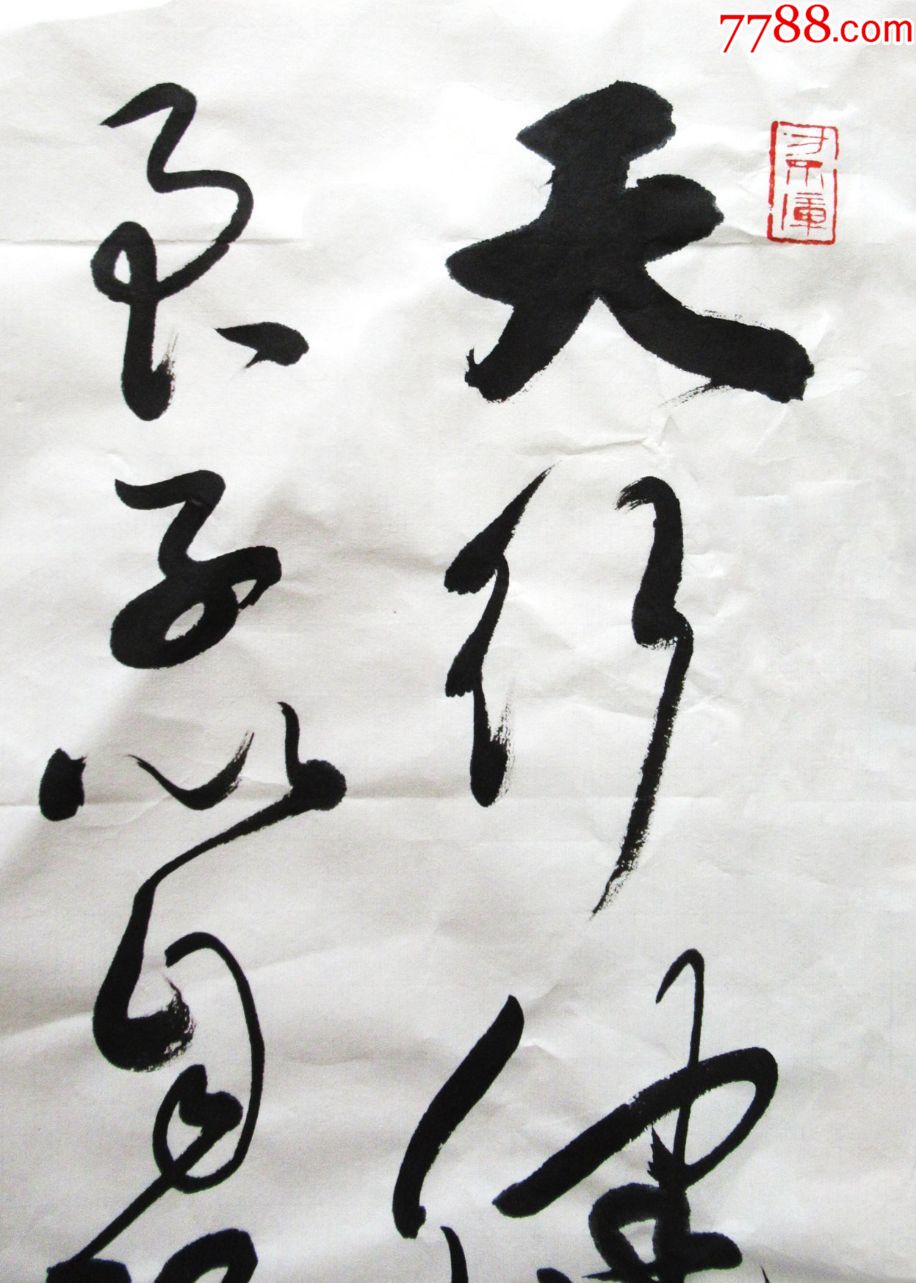 7788.com
天行健
君子以自